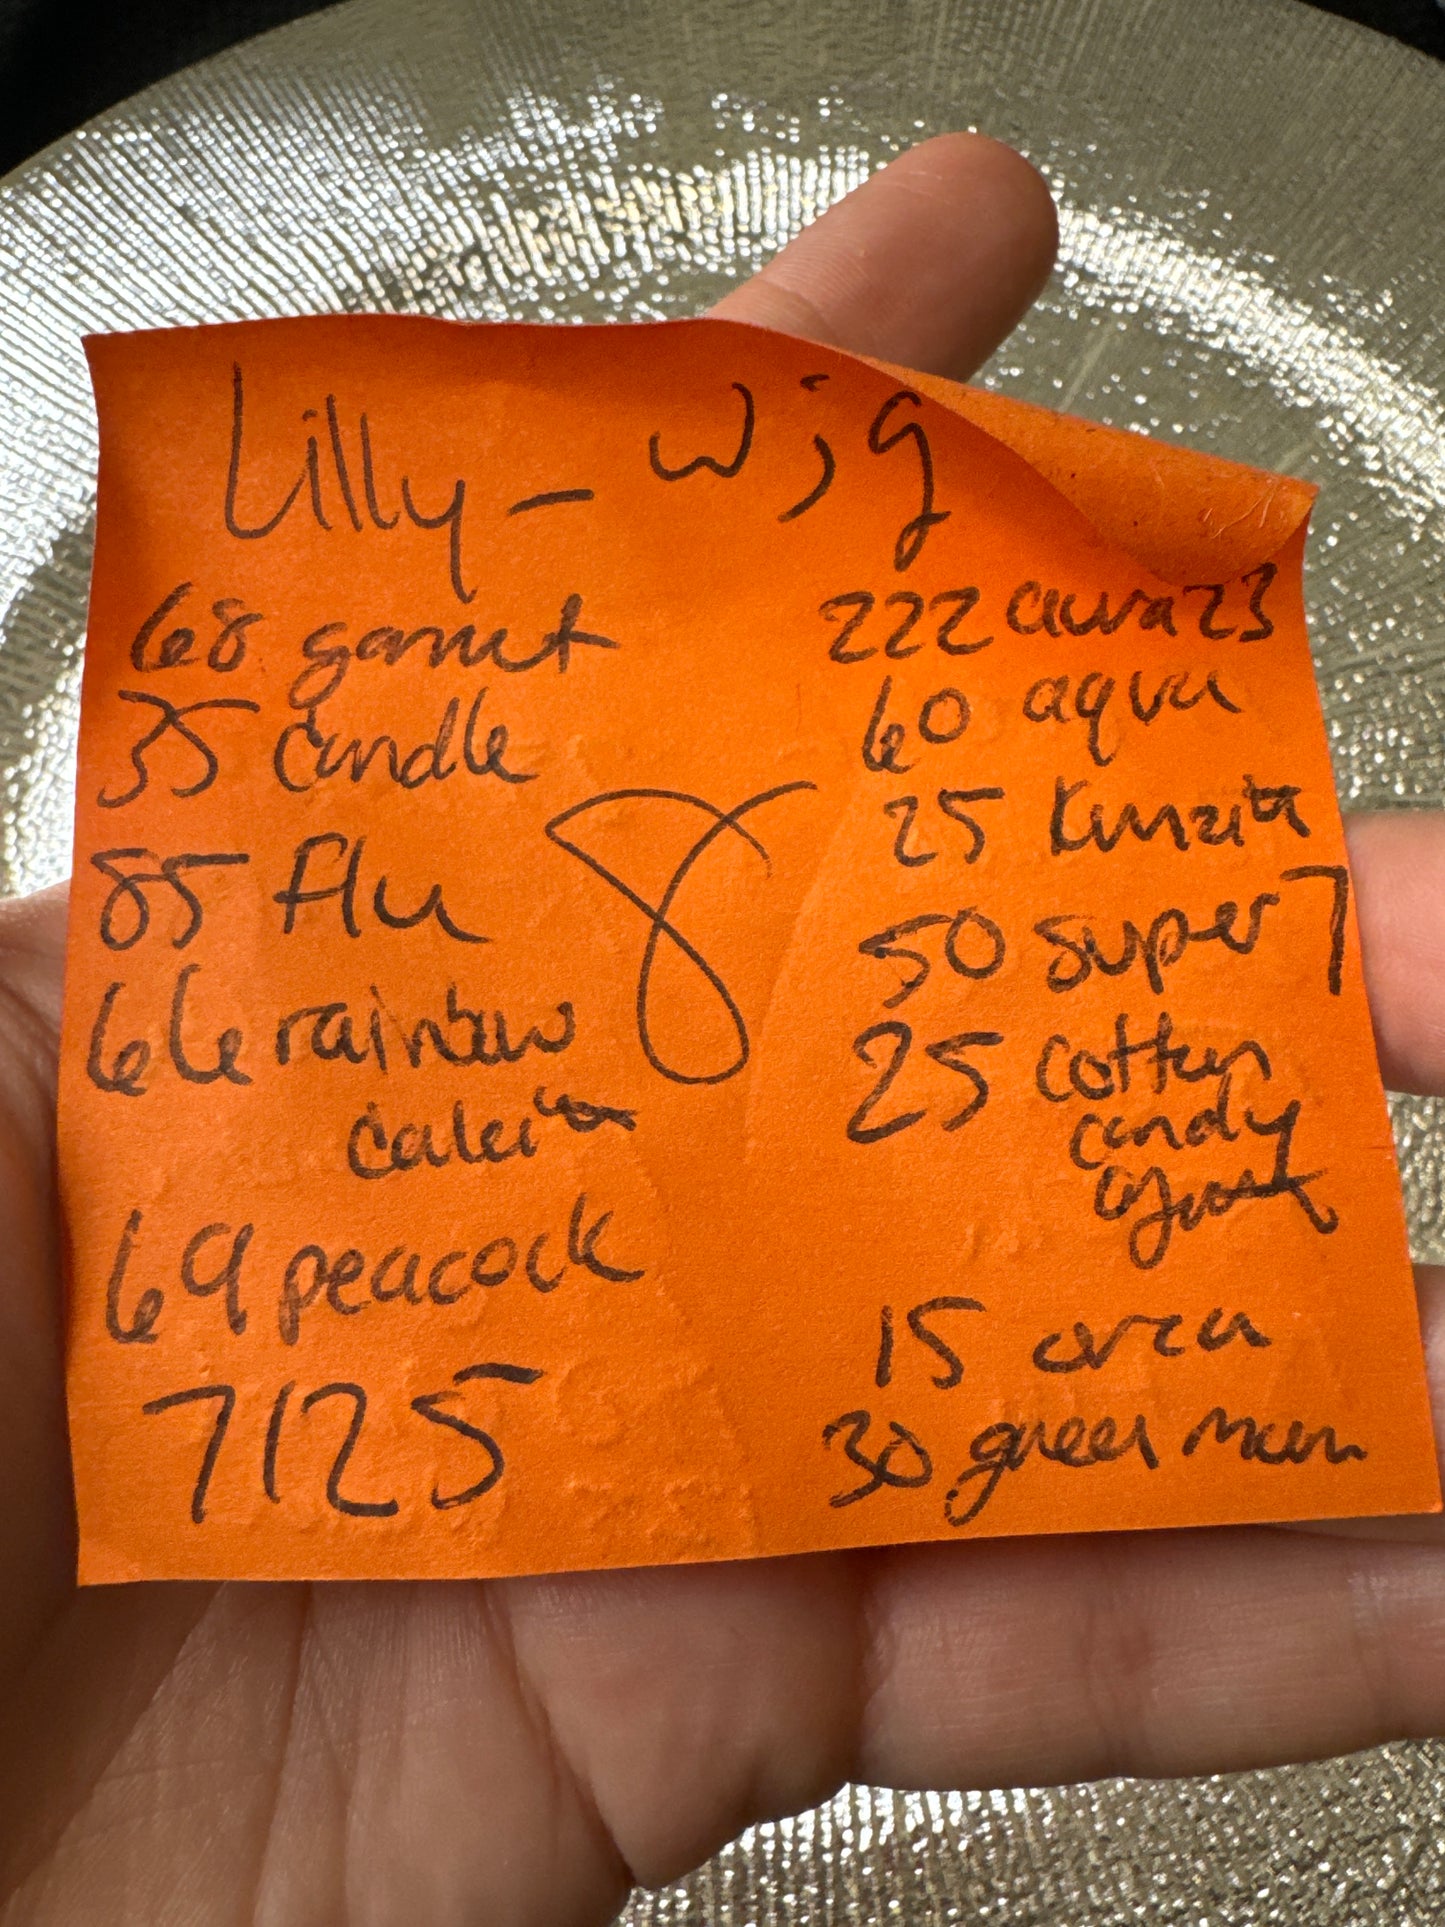 Lilly - wig
68 garnet
35 candle
85 flu
66 rainbow
calcite
69 peacock
7125
222 aura 23
60 aqua
25 kunzite
50 super 7
25 cotton
candy
15 orca
30 green moon